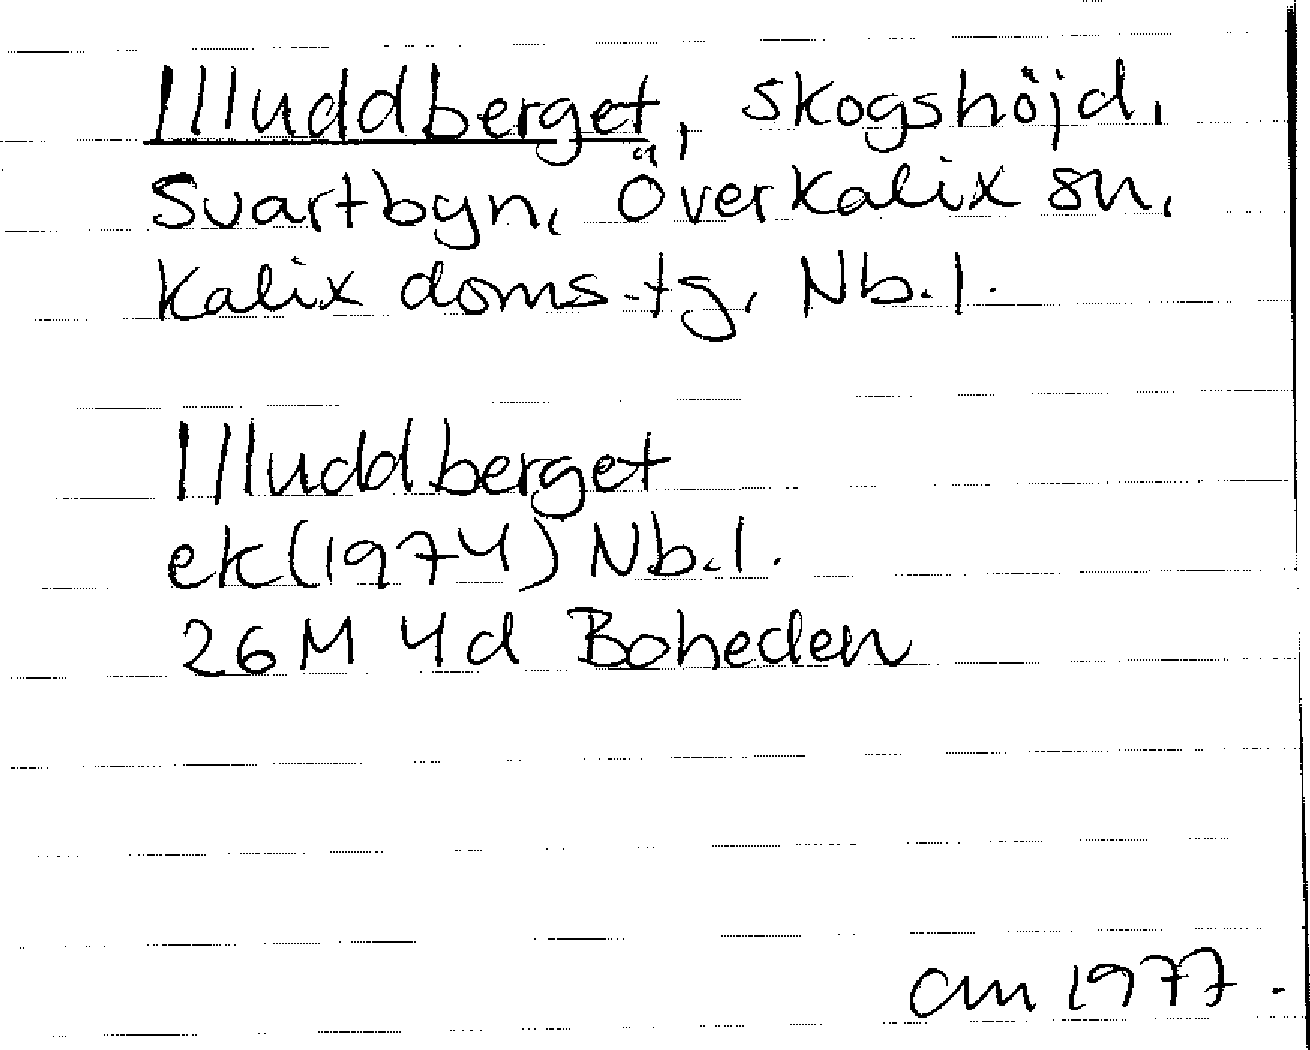 Illuddberget, skogshöjd,
Svartbyn, Överkalix sn,
Kalix doms.tg, Nb.l.
Illuddberget
ek(1974) Nb.l.
26 M 4d Boheden
am 1977.